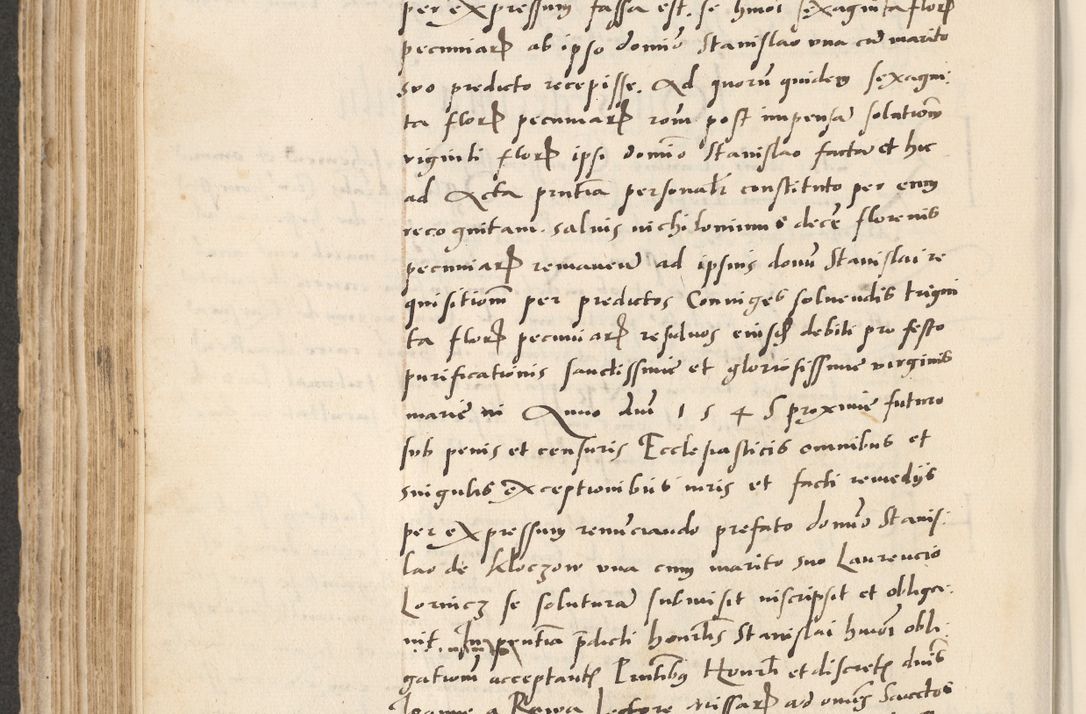 per expressum fassa est. se hmoi sexaginta florꝭ
pecuniarꝭ ab ipso domino Stanislao vna cū marito
suo predicto recepisse. Ad quorū quidem sexagin:
ta florꝭ pecuniarꝭ rom post impensā solutionē
viginti florꝭ ipsi domino Stanislao factā et hic
ad Acta pntia personalr constituto per eum
recognitam. saluis nichilominus decē florenis
pecuniarꝭ remanen ad ipsius domi Stanislai re
quisitionē per predictos Coniuges soluendis trigin
ta florꝭ pecuniarꝭ residuos eiusdē debiti pro festo
purificationis sanctissime et gloriosissime virginis
marie in Anno dni 1 5 4 5 proxime futuro
sub penis et censuris Ecclesiasticis omnibus et
singulis exceptionibus iuris et facti remedijs
per expressum renūciando prefato domino Stanis:
lao de Kloczow vna cum marito suo Laurencio
Lornicz se soluturā submisit inscripsit et obliga:
uit. In pentia p̄dicti honrlis Stanislai hmoi obli:
gationē acceptantꝭ Pntibꝫ Honrl et discretꝭ dnis
Joanne a Rawa Lectore Missarꝭ ad omēs Sanctos